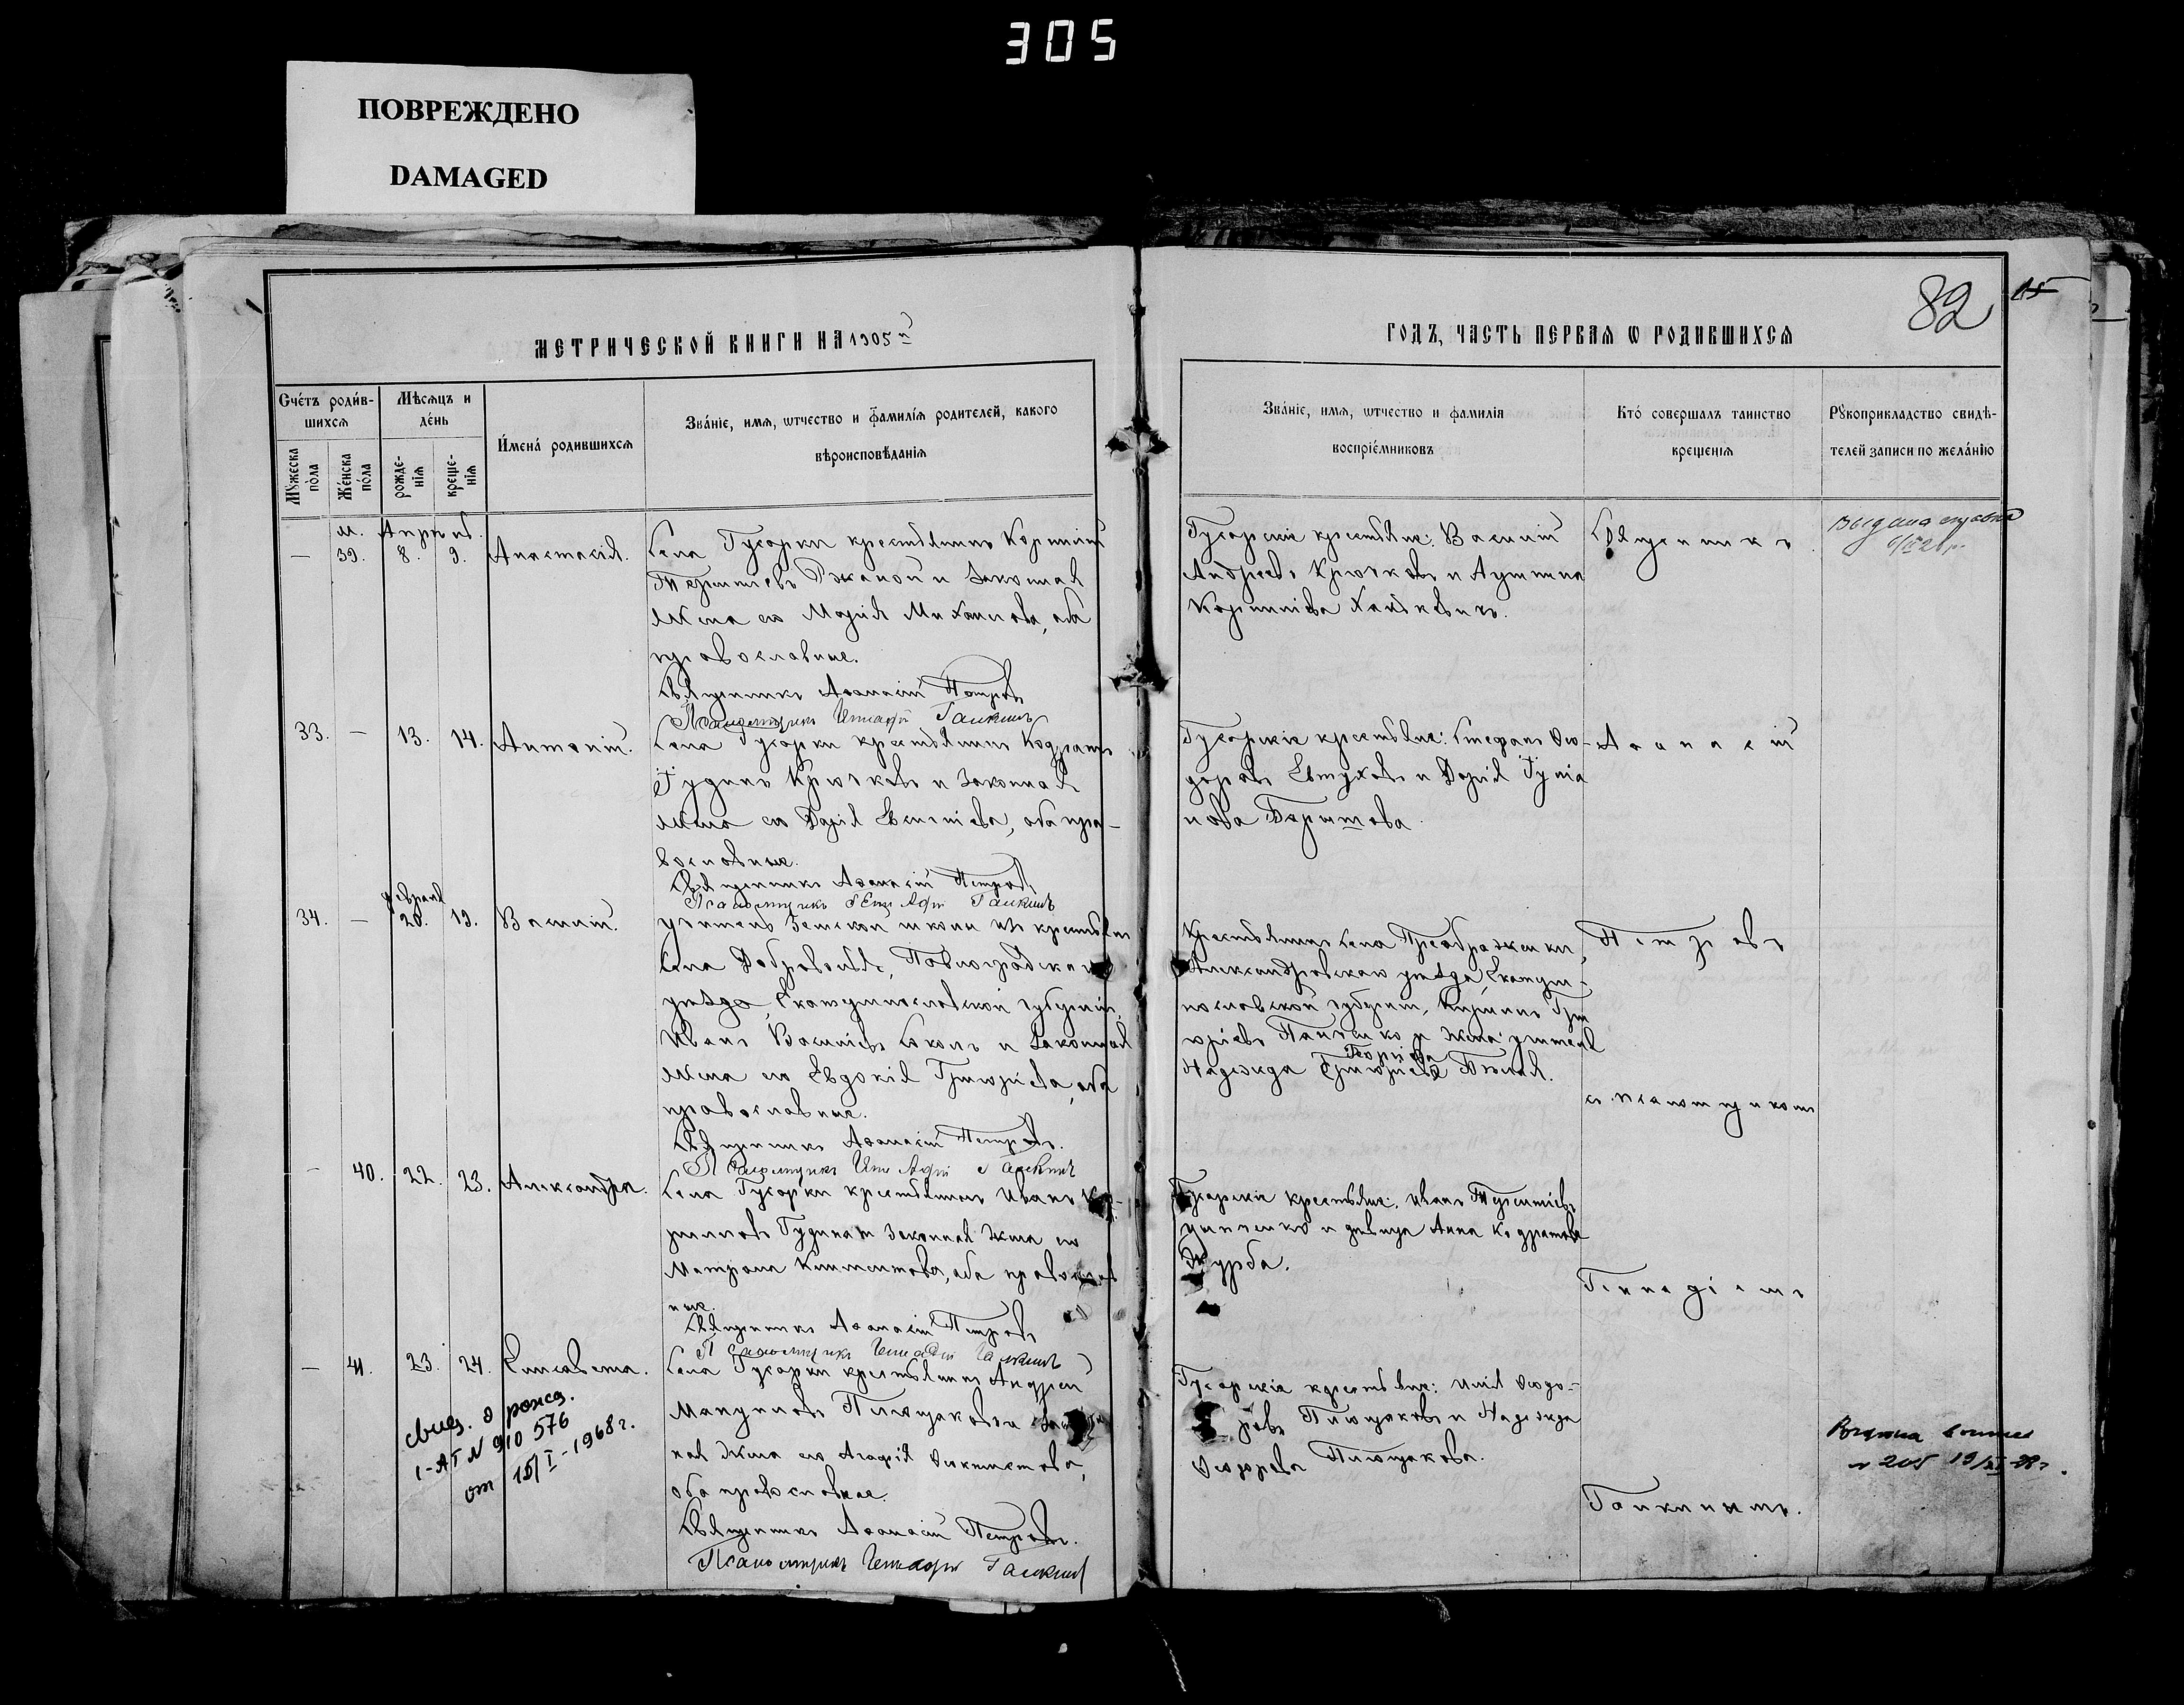 305
ПОВРЕЖДЕНО
DAMAGED
82
МЕТРИЧЕСКОЙ КНИГИ НА 1905 й
ГОДЪ, ЧАСТЬ ПЕРВАЯ Ѡ РОДИВШИХСЯ
Счётъ роди́вшихся
Мѣсяцъ и де́нь
И́мена́ родившихся
Зва́ніе, имя, ѡтчество и фами́лїя родителей, какого вѣроисповѣданія
Мꙋжеска по́ла
Же́нска по́ла
рожденія
крещенія
Зва́ніе, имя, ѡтчество и фамилія воспріе́мниковъ
Кто́ совершалъ таинство крещенія
Рꙋкоприкладство свидѣтелей записи по жела́нію
м. Апрѣль.
— 39. 8. 9. Анастасія.
Села Гусарки крестьянинъ Корнилій
Терентіевъ Ржаной и законная
жена его Марія Михаилова, оба
православные.
Священникъ Аѳанасій Петровъ
Псаломщикъ Геннадій Галкинъ
Гусарскіе крестьяне: Василій
Андреевъ Крючковъ и
Корнилиева
Священникъ
Выдана справка
33. — 13. 14. Антоній.
Села Гусарки крестьянинъ Кодратъ
Крючковъ и законная
жена его Дарія Евсигніева, оба пра-
вославные.
Священникъ Аѳанасій Петровъ
Псаломщикъ Геннадій Галкинъ
Гусарскіе крестьяне: Стефанъ Ѳео-
доровъ Евтуховъ и Дарія Іулiа
нова
Аѳанасій
февраля
34. — 20. 19. Василій.
учитель Земской школы изъ крестьянъ
села Доброволье, Павлоградскаго
уѣзда, Екатеринославской губерніи,
Иванъ Васильевъ Соколъ и законная
жена его Евдокія Григоріева, оба
православные.
Священникъ Аѳанасій Петровъ.
Псаломщикъ Геннадій Галкинъ
Крестьянинъ села Преображенки,
Александровскаго уѣзда, Екатери-
нославской губерніи, Григ
оріевъ Панченко и жена учителя
Георгіева
Надежда Григоріева Бѣлая.
Петровъ
съ псаломщикомъ
— 40. 22. 23. Александра.
Села Гусарки крестьянинъ Иванъ Ки-
рилловъ Гудина и законная жена его
Матрона Климентова, оба православ
ные.
Священникъ Аѳанасій Петровъ
Псаломщикъ Геннадій Галкинъ
Гусарскіе крестьяне: Иванъ Терентіевъ
и дѣвица Анна Кодратова
Журба.
Геннадіемъ
— 41. 23. 24. Елисавета.
Села Гусарки крестьянинъ Андрей
Плющаковъ и закон
ная жена его Агафія Ѳеоктистова,
оба православные.
Священникъ Аѳанасій Петровъ.
Псаломщикъ Геннадій Галкинъ
Гусарскіе крестьяне: Илія Ѳеодо-
ровъ Плющаковъ и Надежда
Ѳеодорова Плющакова.
Галкинымъ.
свид. о рожд.
I-АГ N 910 576
от 15/I-1968 г.
Выдана